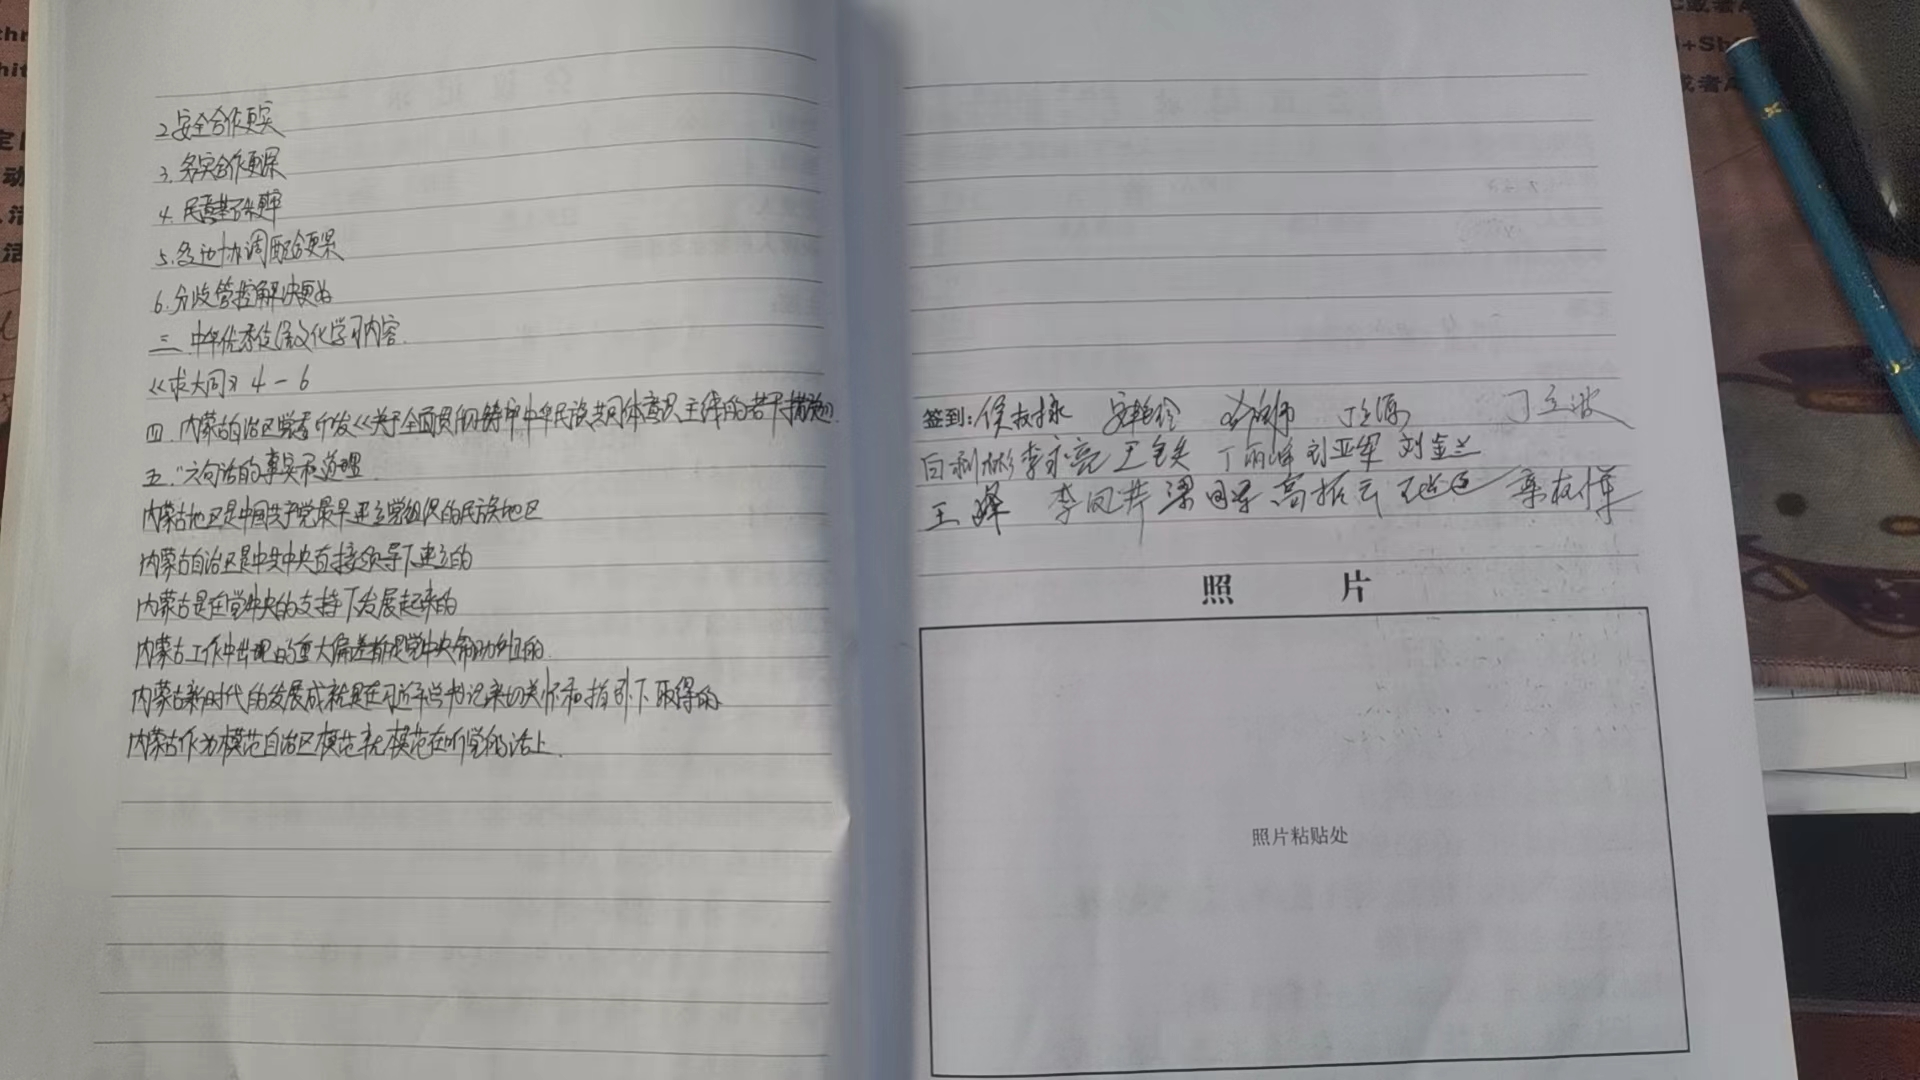 2.安全合作更实
3.务实合作更深
4.民意基础更牢
5.多边协调配合更紧
6.分歧管控解决更好
三.中华优秀传统文化学习内容.
《求大同》4-6
四.内蒙古自治区党委印发《关于全面贯彻铸牢中华民族共同体意识主线的若干措施》.
五."六句话的事实和道理
内蒙古地区是中国共产党最早建立党组织的民族地区
内蒙古自治区是中共中央直接领导下建立的
内蒙古是在党中央的支持下发展起来的
内蒙古工作中出现的重大偏差都是党中央帮助纠正的
内蒙古新时代的发展成就是在习近平总书记亲切关怀和指引下取得的
内蒙古作为模范自治区模范就模范在听党的话上.
签到: 丁立波
白利彬 李永亮 丁雨峰 刘亚军 刘金兰
王 李凤芹 梁国军 高振云
照 片
照片粘贴处